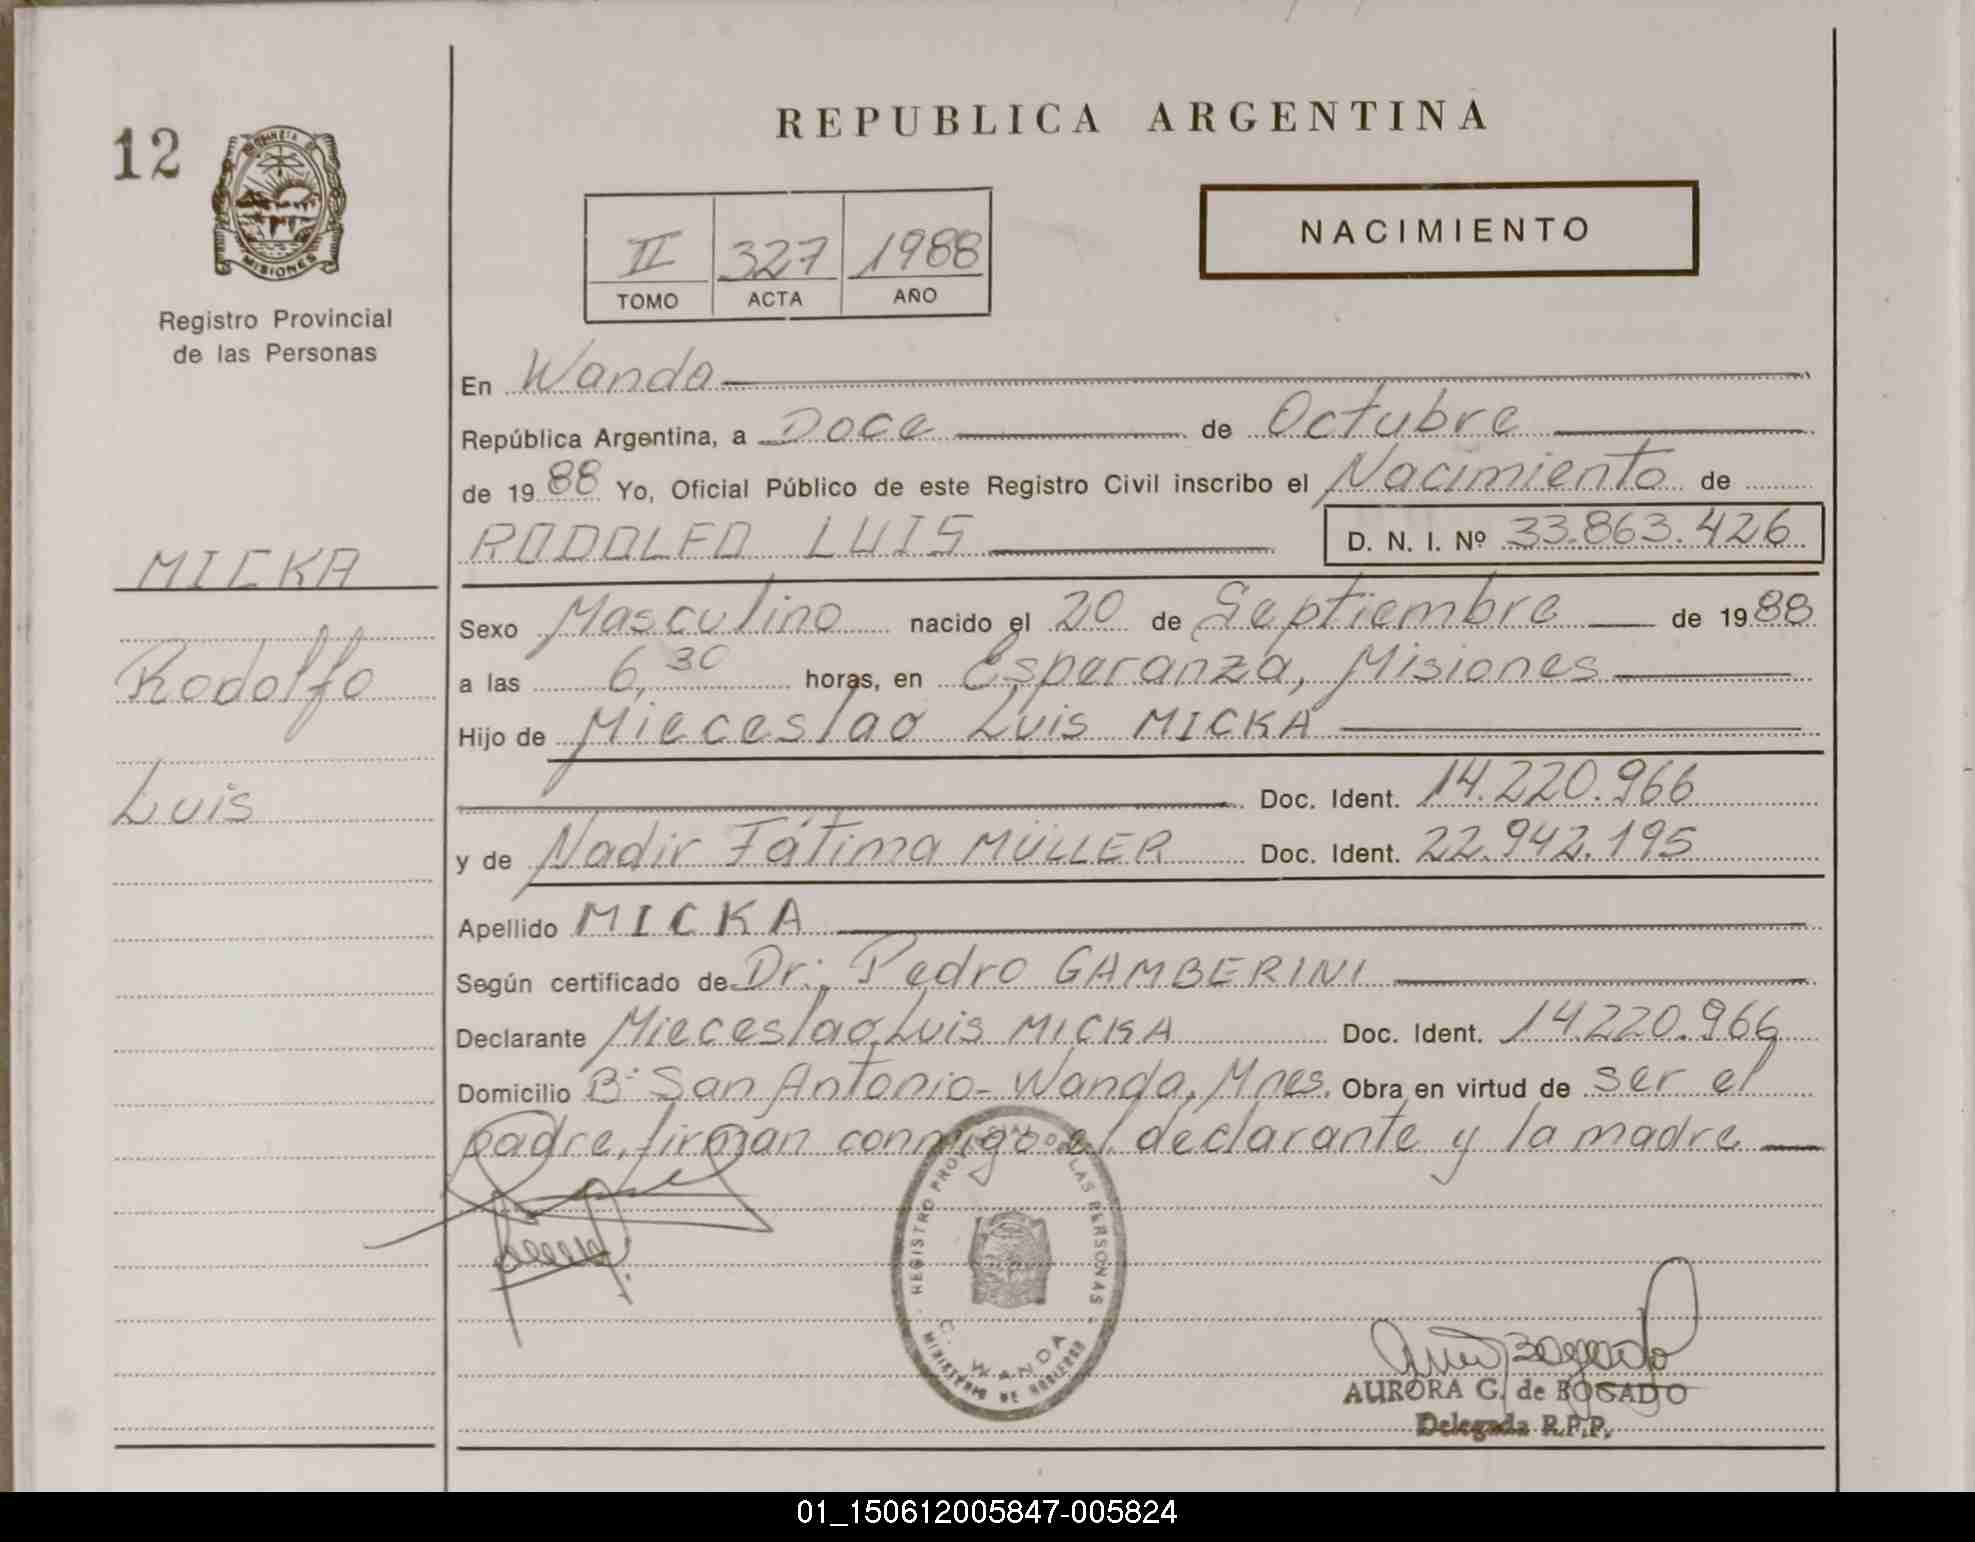 REPUBLICA ARGENTINA
12
MISIONES
Registro Provincial
de las Personas
II 327 1988
TOMO ACTA AÑO
NACIMIENTO
MICKA
Rodolfo
Luis
En Wanda
República Argentina, a Doce de Octubre
de 1988 Yo, Oficial Público de este Registro Civil inscribo el Nacimiento de
RODOLFO LUIS D. N. I. Nº 33.863.426
Sexo Masculino nacido el 20 de Septiembre de 1988
a las 6,30 horas, en Esperanza, Misiones
Hijo de Mieceslao Luis MICKA
Doc. Ident. 14.220.966
y de Nadir Fátima MÜLLER Doc. Ident. 22.942.195
Apellido MICKA
Según certificado de Dr: Pedro GAMBERINI
Declarante Mieceslao Luis MICKA Doc. Ident. 14.220.966
Domicilio Bº San Antonio- Wanda, Mnes. Obra en virtud de ser el
padre, firman conmigo el declarante y la madre
REGISTRO PROVINCIAL DE LAS PERSONAS
WANDA
MINISTERIO DE GOBIERNO
AURORA G. de BOGADO
Delegada R.P.P.
01_150612005847-005824